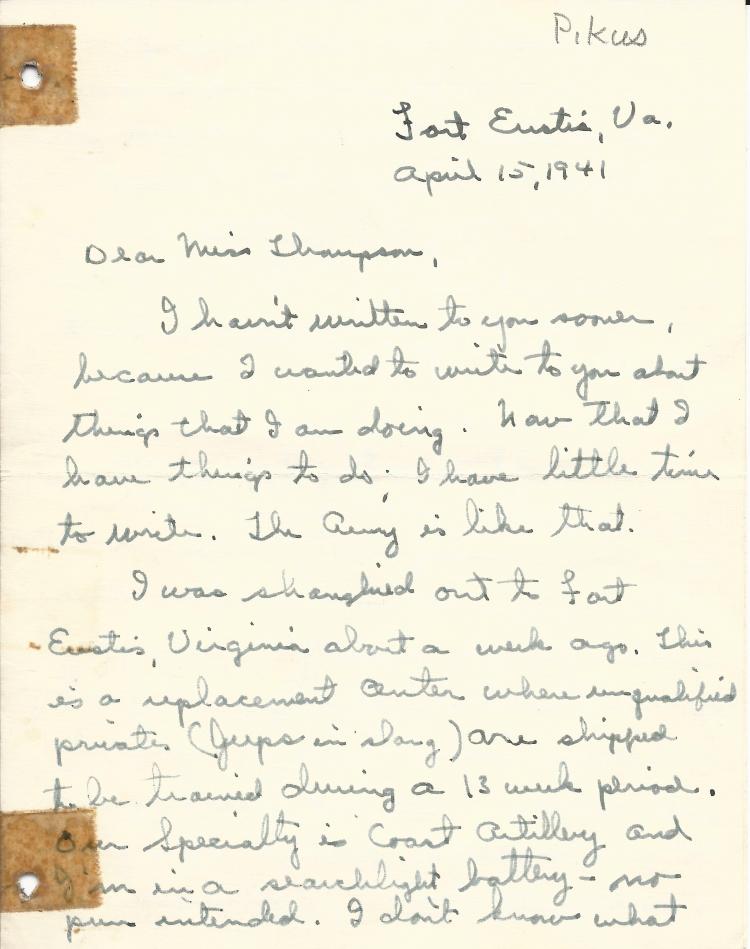 Pikus
Fort Eustis, Va.
April 15, 1941
Dear Miss Thompson,
I haven't written to you sooner,
because I wanted to write to you about
things that I am doing. Now that I
have things to do, I have little time
to write. The Army is like that.
I was shanghied out to Fort
Eustis, Virginia about a week ago. This
is a replacement center where unqualified
privates (Jeeps in slang) are shipped
to be trained during a 13 week period.
Our Specialty is Coast Artillery and
I'm in a searchlight battery - no
pun intended. I don't know what